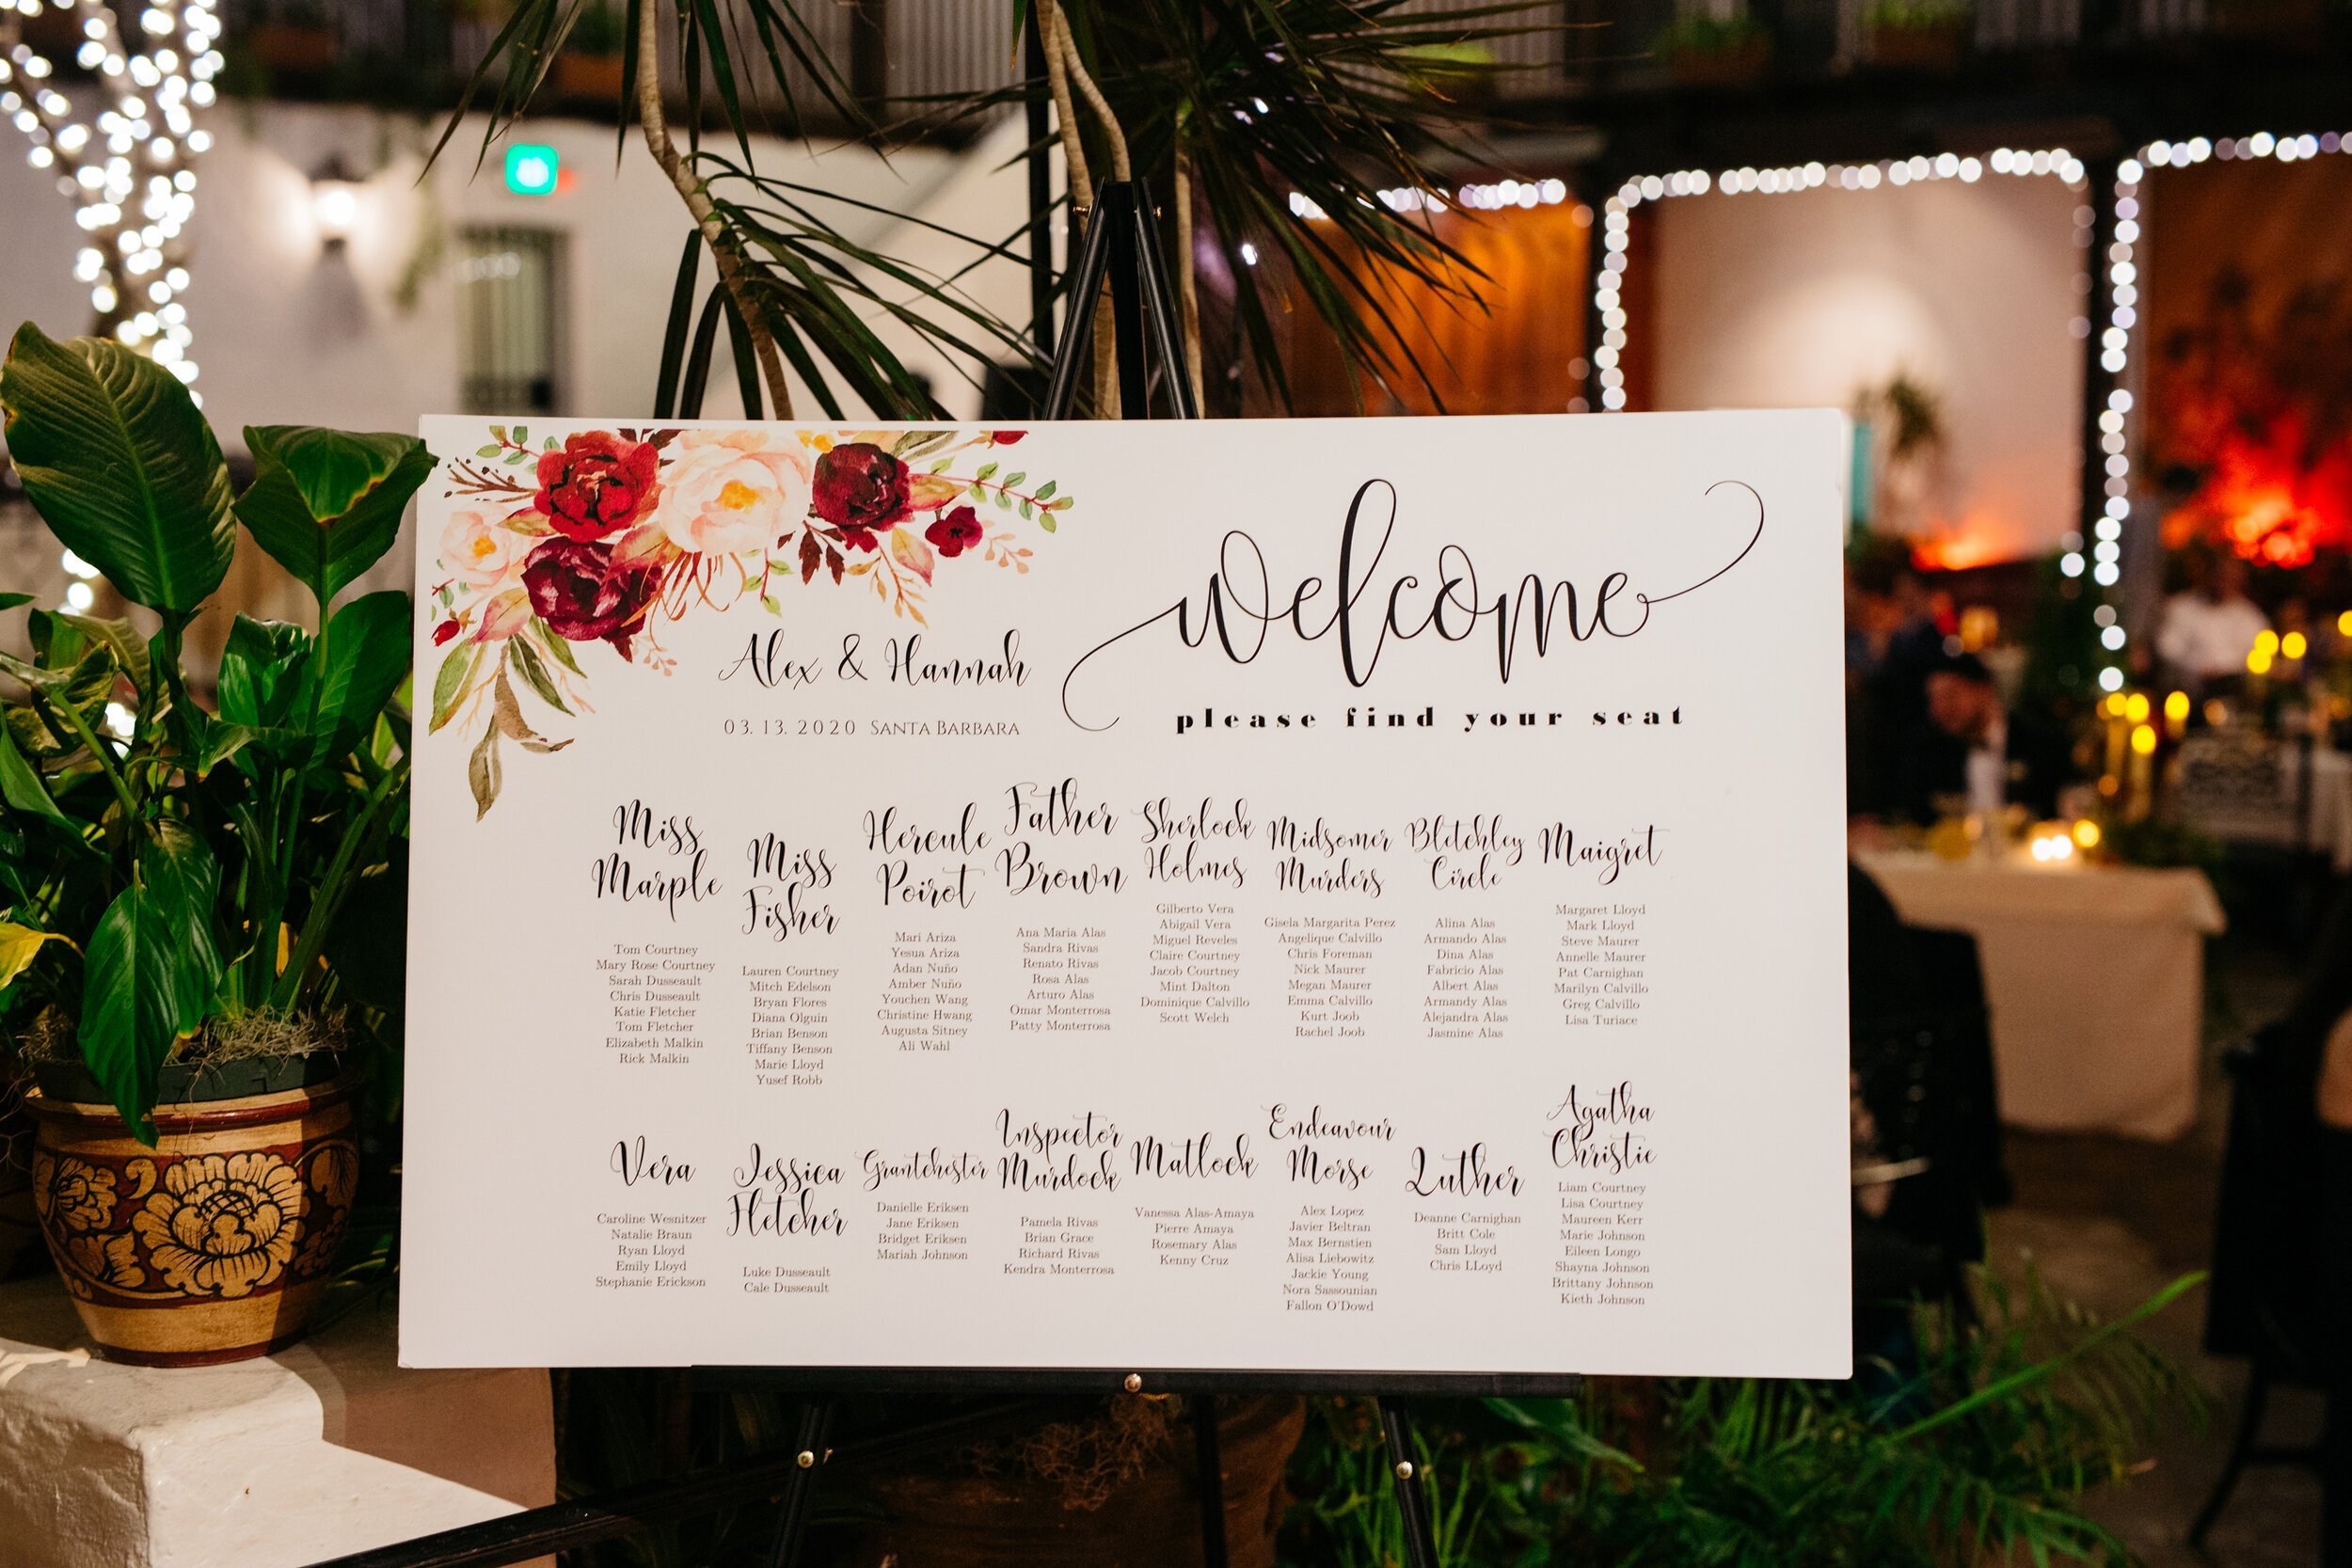 Alex & Hannah
03.13.2020 Santa Barbara
welcome
please find your seat
Miss
Marple
Tom Courtney
Mary Rose Courtney
Sarah Dusseault
Chris Dusseault
Katie Fletcher
Tom Fletcher
Elizabeth Malkin
Rick Malkin
Miss
Fisher
Lauren Courtney
Mitch Edelson
Bryan Flores
Diana Olguin
Brian Benson
Tiffany Benson
Marie Lloyd
Yusef Robb
Hercule
Poirot
Mari Ariza
Yesua Ariza
Adan Nuño
Amber Nuño
Youchen Wang
Christine Hwang
Augusta Sitney
Ali Wahl
Father
Brown
Ana Maria Alas
Sandra Rivas
Renato Rivas
Rosa Alas
Arturo Alas
Omar Monterrosa
Patty Monterrosa
Sherlock
Holmes
Gilberto Vera
Abigail Vera
Miguel Reveles
Claire Courtney
Jacob Courtney
Mint Dalton
Dominique Calvillo
Scott Welch
Midsomer
Murders
Gisela Margarita Perez
Angelique Calvillo
Chris Foreman
Nick Maurer
Megan Maurer
Emma Calvillo
Kurt Joob
Rachel Joob
Bletchley
Circle
Alina Alas
Armando Alas
Dina Alas
Fabricio Alas
Albert Alas
Armandy Alas
Alejandra Alas
Jasmine Alas
Maigret
Margaret Lloyd
Mark Lloyd
Steve Maurer
Annelle Maurer
Pat Carnighan
Marilyn Calvillo
Greg Calvillo
Lisa Turiace
Vera
Caroline Wesnitzer
Natalie Braun
Ryan Lloyd
Emily Lloyd
Stephanie Erickson
Jessica
Fletcher
Luke Dusseault
Cale Dusseault
Grantchester
Danielle Eriksen
Jane Eriksen
Bridget Eriksen
Mariah Johnson
Inspector
Murdock
Pamela Rivas
Brian Grace
Richard Rivas
Kendra Monterrosa
Matlock
Vanessa Alas-Amaya
Pierre Amaya
Rosemary Alas
Kenny Cruz
Endeavour
Morse
Alex Lopez
Javier Beltran
Max Bernstien
Alisa Liebowitz
Jackie Young
Nora Sassounian
Fallon O'Dowd
Luther
Deanne Carnighan
Britt Cole
Sam Lloyd
Chris LLoyd
Agatha
Christie
Liam Courtney
Lisa Courtney
Maureen Kerr
Marie Johnson
Eileen Longo
Shayna Johnson
Brittany Johnson
Kieth Johnson